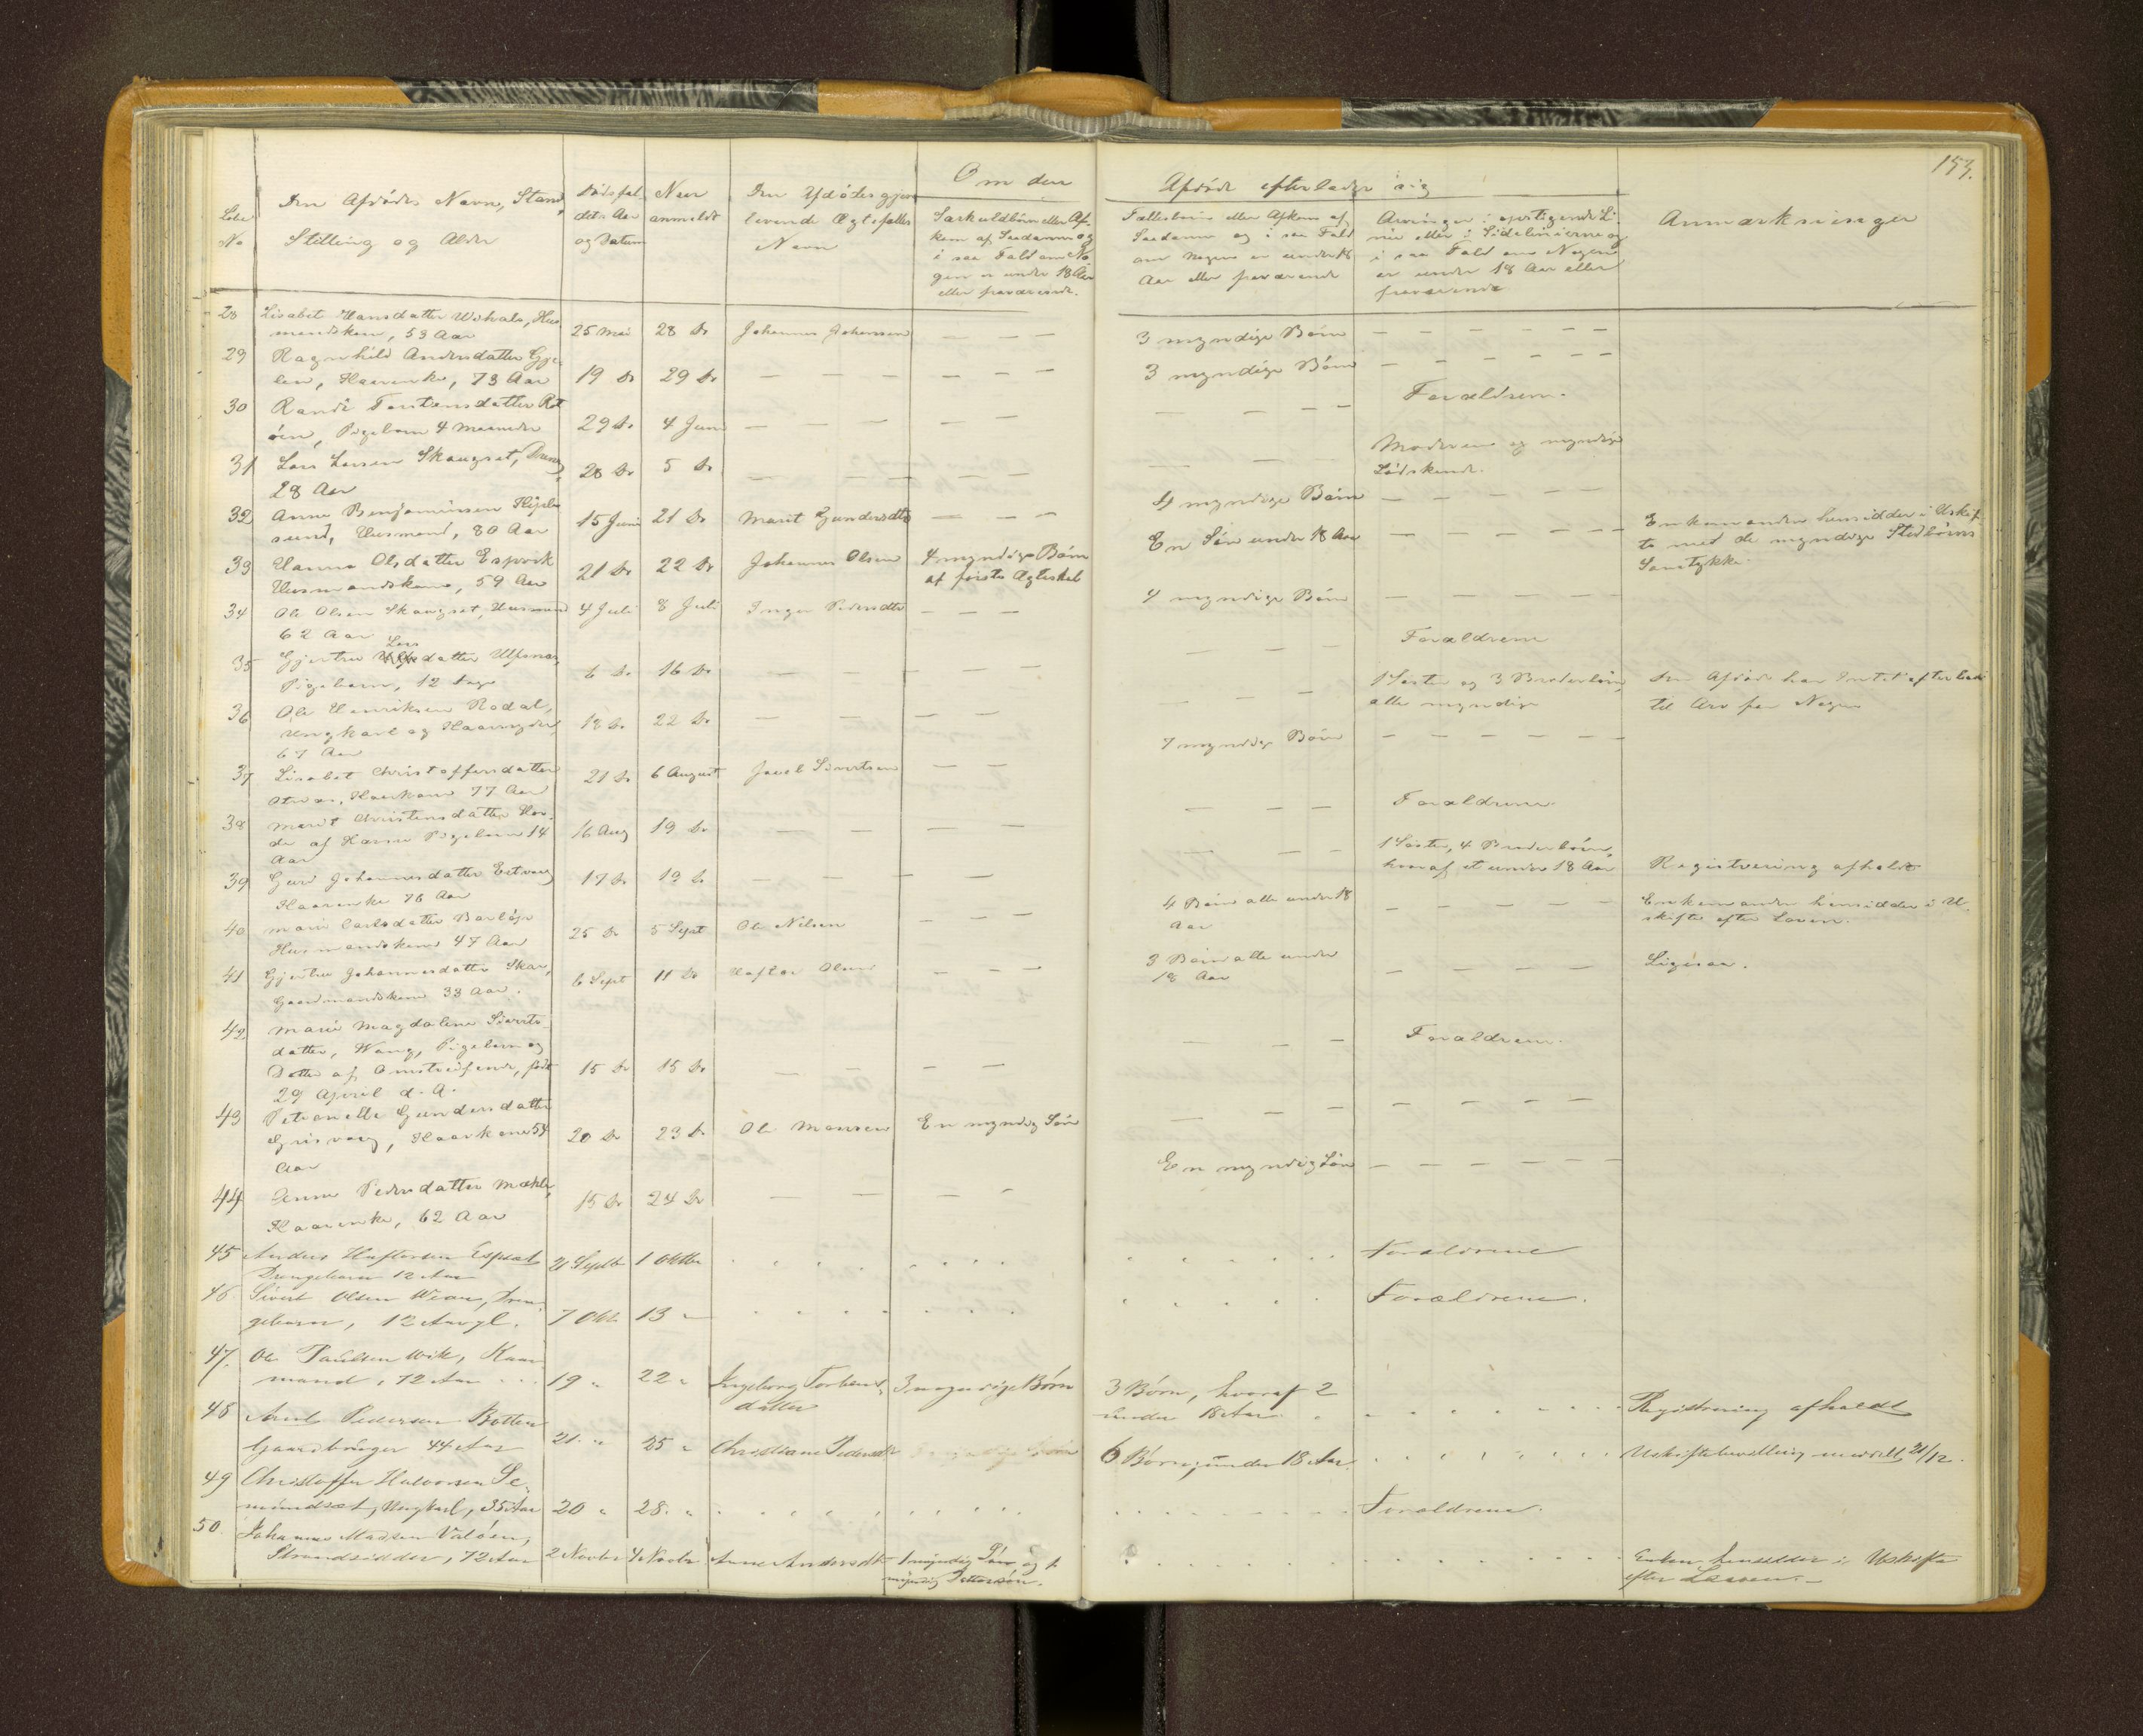 153.
Om den Afdöde efterlader sig
Löbe No
Den Afdödes Navn, Stand, Stilling og Alder
Dödsfaldets Aar og Datum
Naar anmeldt
Den Afdödes gjenlevende Ægtefælles Navn
Særkuldbörn eller Afkom af Saadanne og i saa Fald om Nogen er under 18 Aar eller fraværende.
Fællesbörn eller Afkom af Saadanne og i saa Fald om Nogen er under 18 Aar eller fraværende
Arvinger i opstigende Linie eller i Sidelinierne og i saa Fald om Nogen er under 18 Aar eller fraværende
Anmærkninger
28 Lisabet Hansdatter , Husmandskone, 53 Aar 25 Mai 28 Do Johannes Johansen — — — 3 myndige Börn — — — — — —
29 Ragnhild Andersdatter , Kaarenke, 73 Aar 19 Do 29 Do — — — — — — — 3 myndige Börn — — — — — —
30 Randi Torstensdatter Rotöen, Pigebarn 4 Maaneder 29 Do 4 Juni — — — — — — — — Forældrene.
31 Lars Larsen Skaugset, Dreng, 28 Aar 28 Do 5 Do — — — — — — — — Moderen og myndige Södskende.
32 Arne Benjaminsen , Husmand, 80 Aar 15 Juni 21 Do Marit Gundersdtr — — — 4 myndige Börn — — — — —
33 Hanna Olsdatter Espvik Husmandskone, 59 Aar 21 Do 22 Do Johannes Olsen 4 myndige Börn af förste Ægteskab En Sön under 18 Aar — — — — — Enkemanden hensidder i Uskifte med de myndige Stedbörns Samtykke.
34 Ole Olsen Skaugset, Husmand 62 Aar 4 Juli 8 Juli Inger Pedersdtr — — — 4 myndige Börn — — — — —
35 Gjertru Lars datter Ulfsnæs, Pigebarn, 12 Dage 6 Do 16 Do — — — — — — — — Forældrene
36 Ole Henriksen Rodal, Ungkarl og , 67 Aar 18 Do 22 Do — — — — — — — 1 Söster og 3 Broderbörn, alle myndige Den Afdöde har Intet efterladt til Arv for Nogen
37 Lisabet Christoffersdatter , Kaarkone 77 Aar 21 Do 6 August Jacob Sivertsen — — 7 myndige Börn — — — — — —
38 Marit Christensdatter af Pigebarn 14 Aar 16 Aug 19 Do — — — — — — — — Forældrene.
39 Guri Johannesdatter Kaarenke 76 Aar 17 Do 19 Do — — — — — — — — 1 Söster, 4 Broderbörn, hvoraf et under 18 Aar Registrering afholdt
40 Marie Carlsdatter Husmandskone 47 Aar 25 Do 5 Sept Ole Nilsen — — — 4 Börn alle under 18 Aar — — — — — Enkemanden hensidder i Uskifte efter Loven.
41 Gjertru Johannesdatter Skar, Gaardmandskone 33 Aar. 6 Sept 11 Do Haftor Olsen — — — 3 Börn alle under 18 Aar — — — — — Ligesaa.
42 Marie Magdalena Sivertsdatter, Wang, Pigebarn og Datter af Omstreifende, födt 29 April d. A. 15 Do 15 Do — — — — — — — Forældrene.
43 Petronelle Gundersdatter Grisvaag, Kaarkone 54 Aar 20 Do 23 Do Ole Monsen En myndig Sön — — — — — — — — —
44 Anne Pedersdatter , Kaarenke, 62 Aar 15 Do 24 Do — — — — En myndig Sön — — — — — —
45 Anders Haftorsen Espset Drengebarn 12 Aar 21 Septb 1 Oktbr Forældrene
46 Sivert Olsen , Drengebarn, 12 Aar gl. 7 Okt. 13 " Forældrene.
47. Ole Paulsen Wik, Kaarmand, 72 Aar 19 " 22 " Ingeborg Torbensdatter 3 myndige Börn 3 Börn, hvoraf 2 under 18 Aar. Registrering afholdt
48 Arnt Pedersen Botten Gaardbruger 44 Aar 21. " 25 " Christiane Pedersdtr 6 Börn under 18 Aar. Uskiftebevilling meddelt 21/12.
49 Christoffer Halvorsen Semundset, Ungkarl, 35 Aar 20 " 28. " Forældrene.
50. Johannes Madsen Valöen, Strandsidder, 72 Aar 2 Novbr 4 Novbr Anne Andersdtr 1 myndig Sön og 1 myndig Dattersön. Enken hensidder i Uskifte efter Loven.